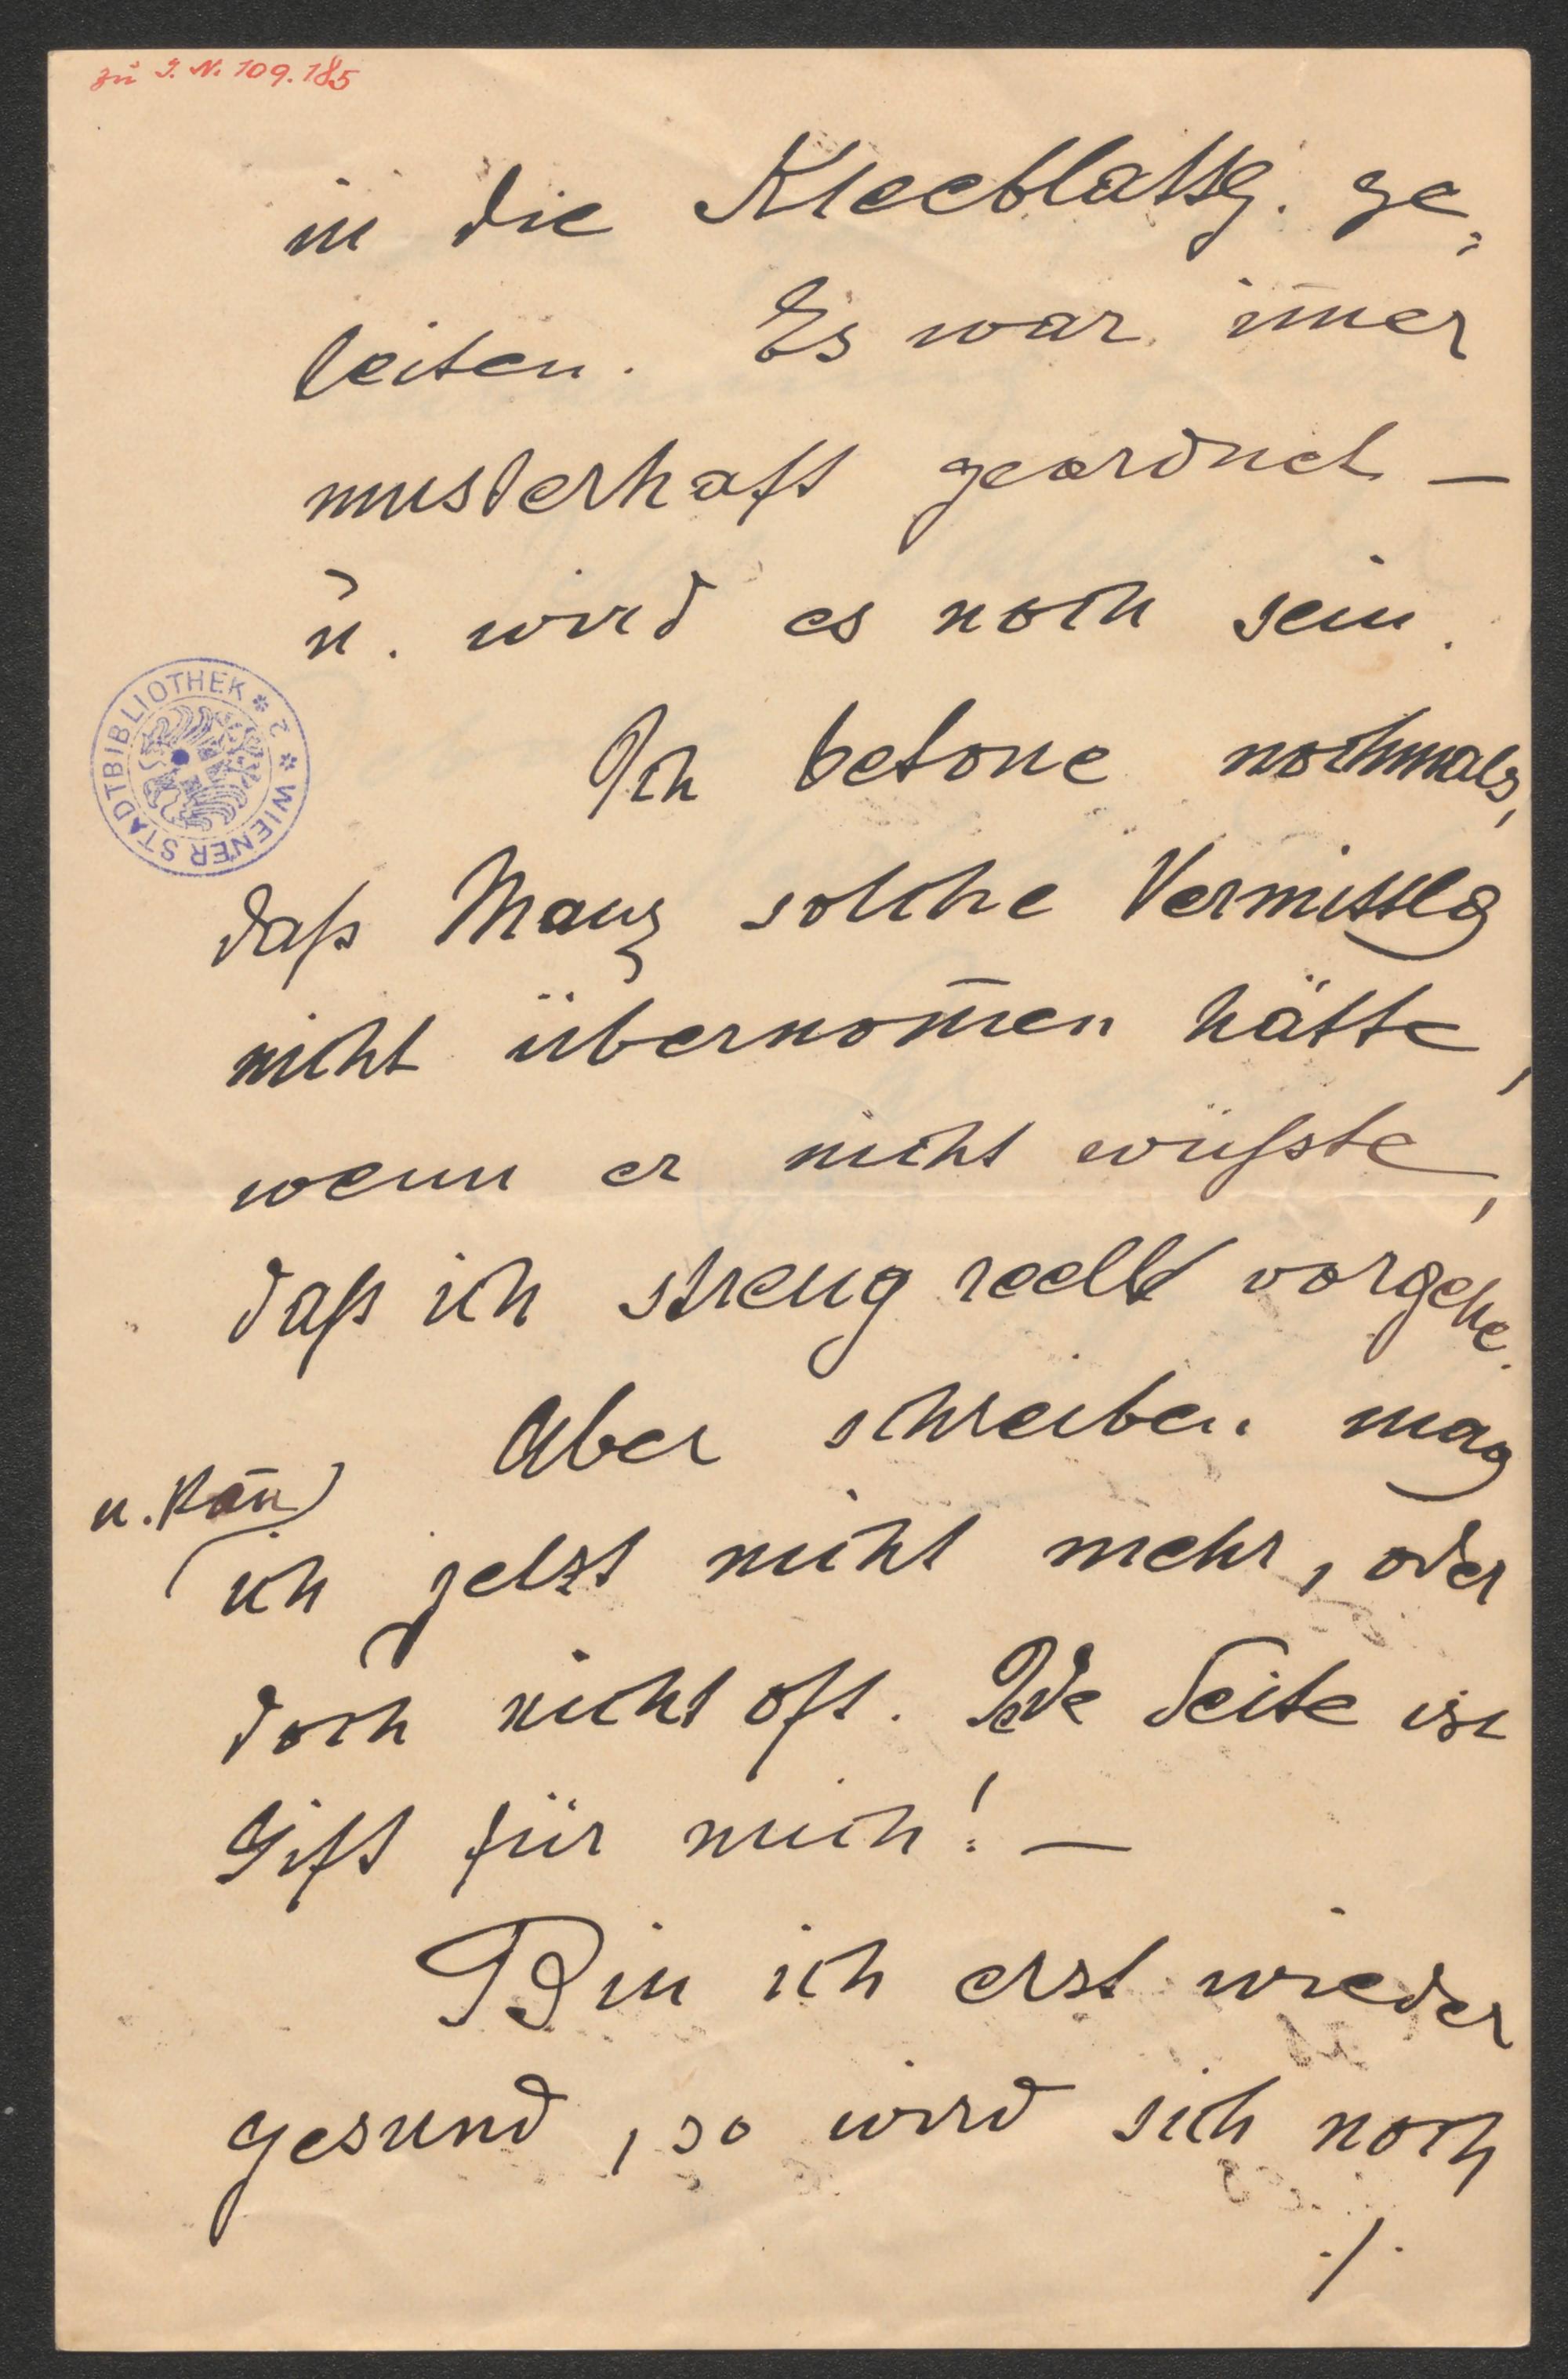 zu I. N. 109.185
in die Kleeblattg. ge-
leiten. Es war im̅er
musterhaft geordnet —
u. wird es noch sein.
WIENER STADTBIBLIOTHEK * 2 *
Ich betone nochmals,
daß Manz solche Vermittlg
nicht übernom̅en hätte,
wenn er nicht wüßste,
daß ich streng reell vorgehe.
Aber schreiben mag
u. kan̅
ich jetzt nicht mehr, oder
doch nicht oft. Jede Seite ist
Gift für mich! —
Bin ich erst wieder
gesund, so wird sich noch
./.